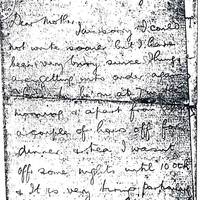 Dear Mother,
I am sorry I could
not write sooner but I have
been very busy, since things
are getting into order again
morning & apart from
a couple of hours off for
dinner & tea I wasn't
off some nights until 10 o'clk
& It is very